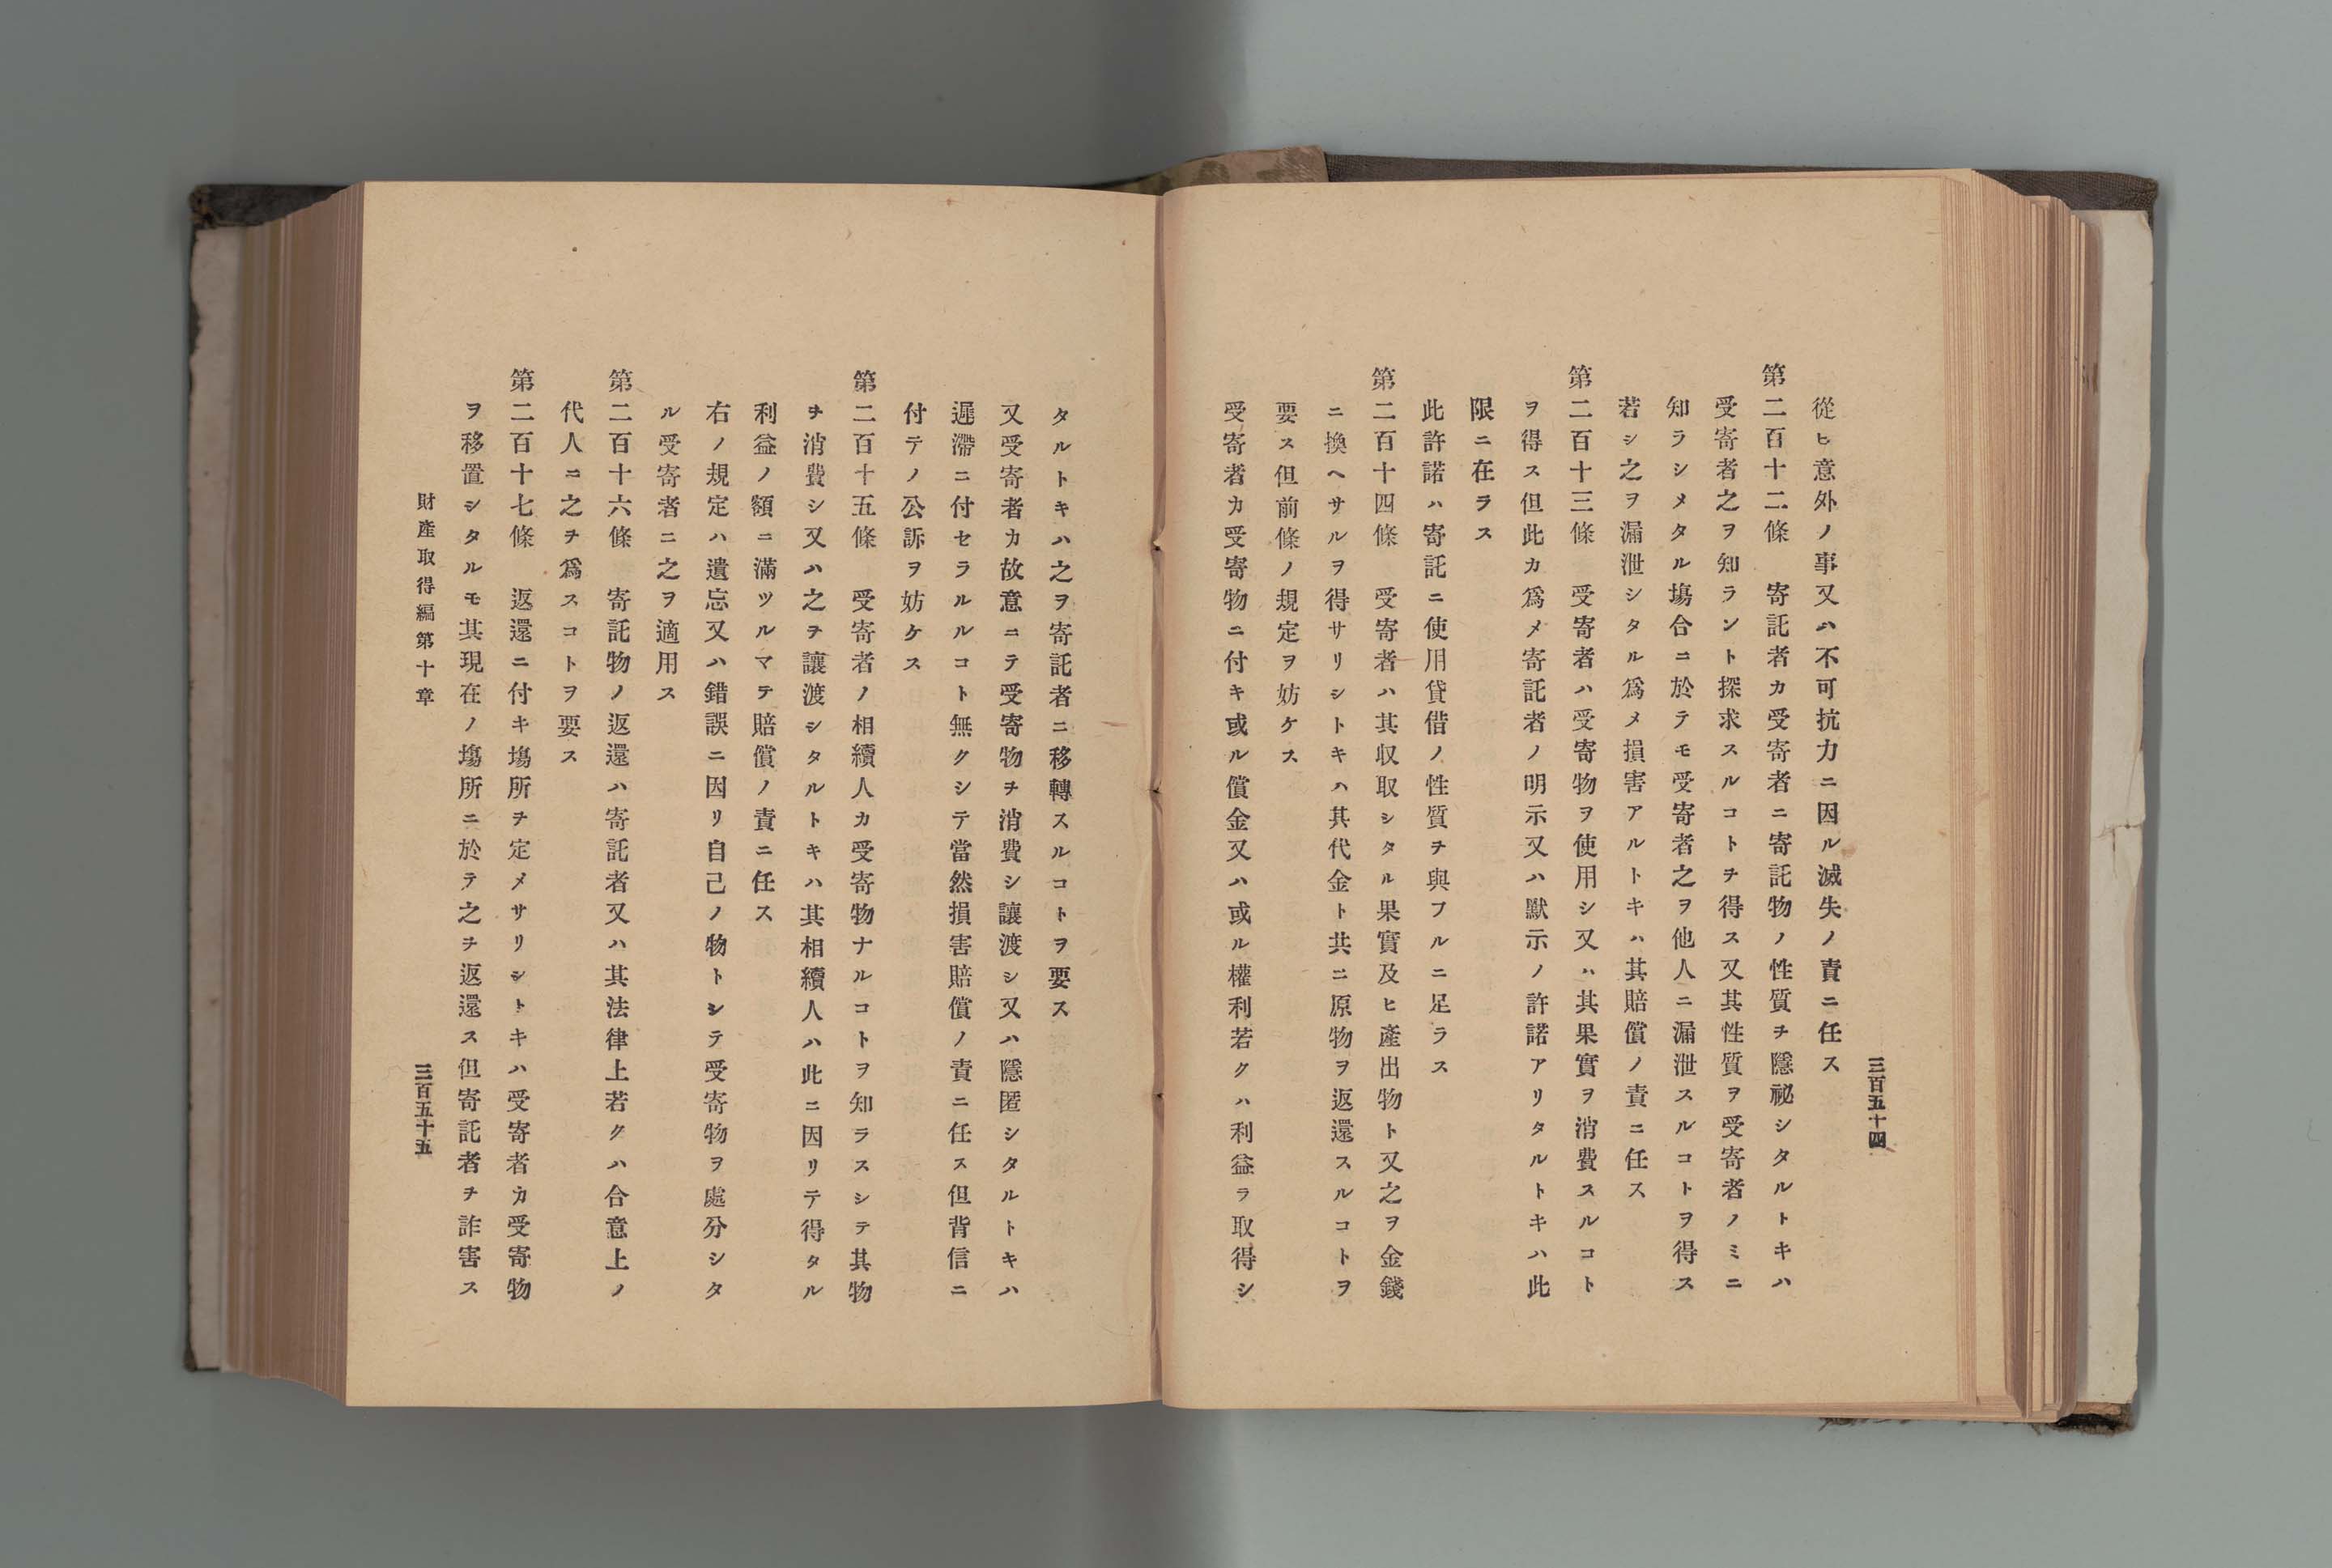 三百五十四
從ヒ意外ノ事又ハ不可抗力ニ因ル滅失ノ責ニ任ス
第二百十二條　寄託者カ受寄者ニ寄託物ノ性質ヲ隱祕シタルトキハ
受寄者之ヲ知ラント探求スルコトヲ得ス又其性質ヲ受寄者ノミニ
知ラシメタル塲合ニ於テモ受寄者之ヲ他人ニ漏泄スルコトヲ得ス
若シ之ヲ漏泄シタル爲メ損害アルトキハ其賠償ノ責ニ任ス
第二百十三條　受寄者ハ受寄物ヲ使用シ又ハ其果實ヲ消費スルコト
ヲ得ス但此カ爲メ寄託者ノ明示又ハ默示ノ許諾アリタルトキハ此
限ニ在ラス
此許諾ハ寄託ニ使用貸借ノ性質ヲ與フルニ足ラス
第二百十四條　受寄者ハ其収取シタル果實及ヒ產出物ト又之ヲ金錢
ニ換ヘサルヲ得サリシトキハ其代金ト共ニ原物ヲ返還スルコトヲ
要ス但前條ノ規定ヲ妨ケス
受寄者カ受寄物ニ付キ或ル償金又ハ或ル權利若クハ利益ヲ取得シ
タルトキハ之ヲ寄託者ニ移轉スルコトヲ要ス
又受寄者カ故意ニテ受寄物ヲ消費シ讓渡シ又ハ隱匿シタルトキハ
遲滯ニ付セラルルコト無クシテ當然損害賠償ノ責ニ任ス但背信ニ
付テノ公訴ヲ妨ケス
第二百十五條　受寄者ノ相續人カ受寄物ナルコトヲ知ラスシテ其物
ヲ消費シ又ハ之ヲ讓渡シタルトキハ其相續人ハ此ニ因リテ得タル
利益ノ額ニ滿ツルマテ賠償ノ責ニ任ス
右ノ規定ハ遺忘又ハ錯誤ニ因リ自己ノ物トシテ受寄物ヲ處分シタ
ル受寄者ニ之ヲ適用ス
第二百十六條　寄託物ノ返還ハ寄託者又ハ其法律上若クハ合意上ノ
代人ニ之ヲ爲スコトヲ要ス
第二百十七條　返還ニ付キ塲所ヲ定メサリシトキハ受寄者カ受寄物
ヲ移置シタルモ其現在ノ塲所ニ於テ之ヲ返還ス但寄託者ヲ詐害ス
財產取得編第十章
三百五十五